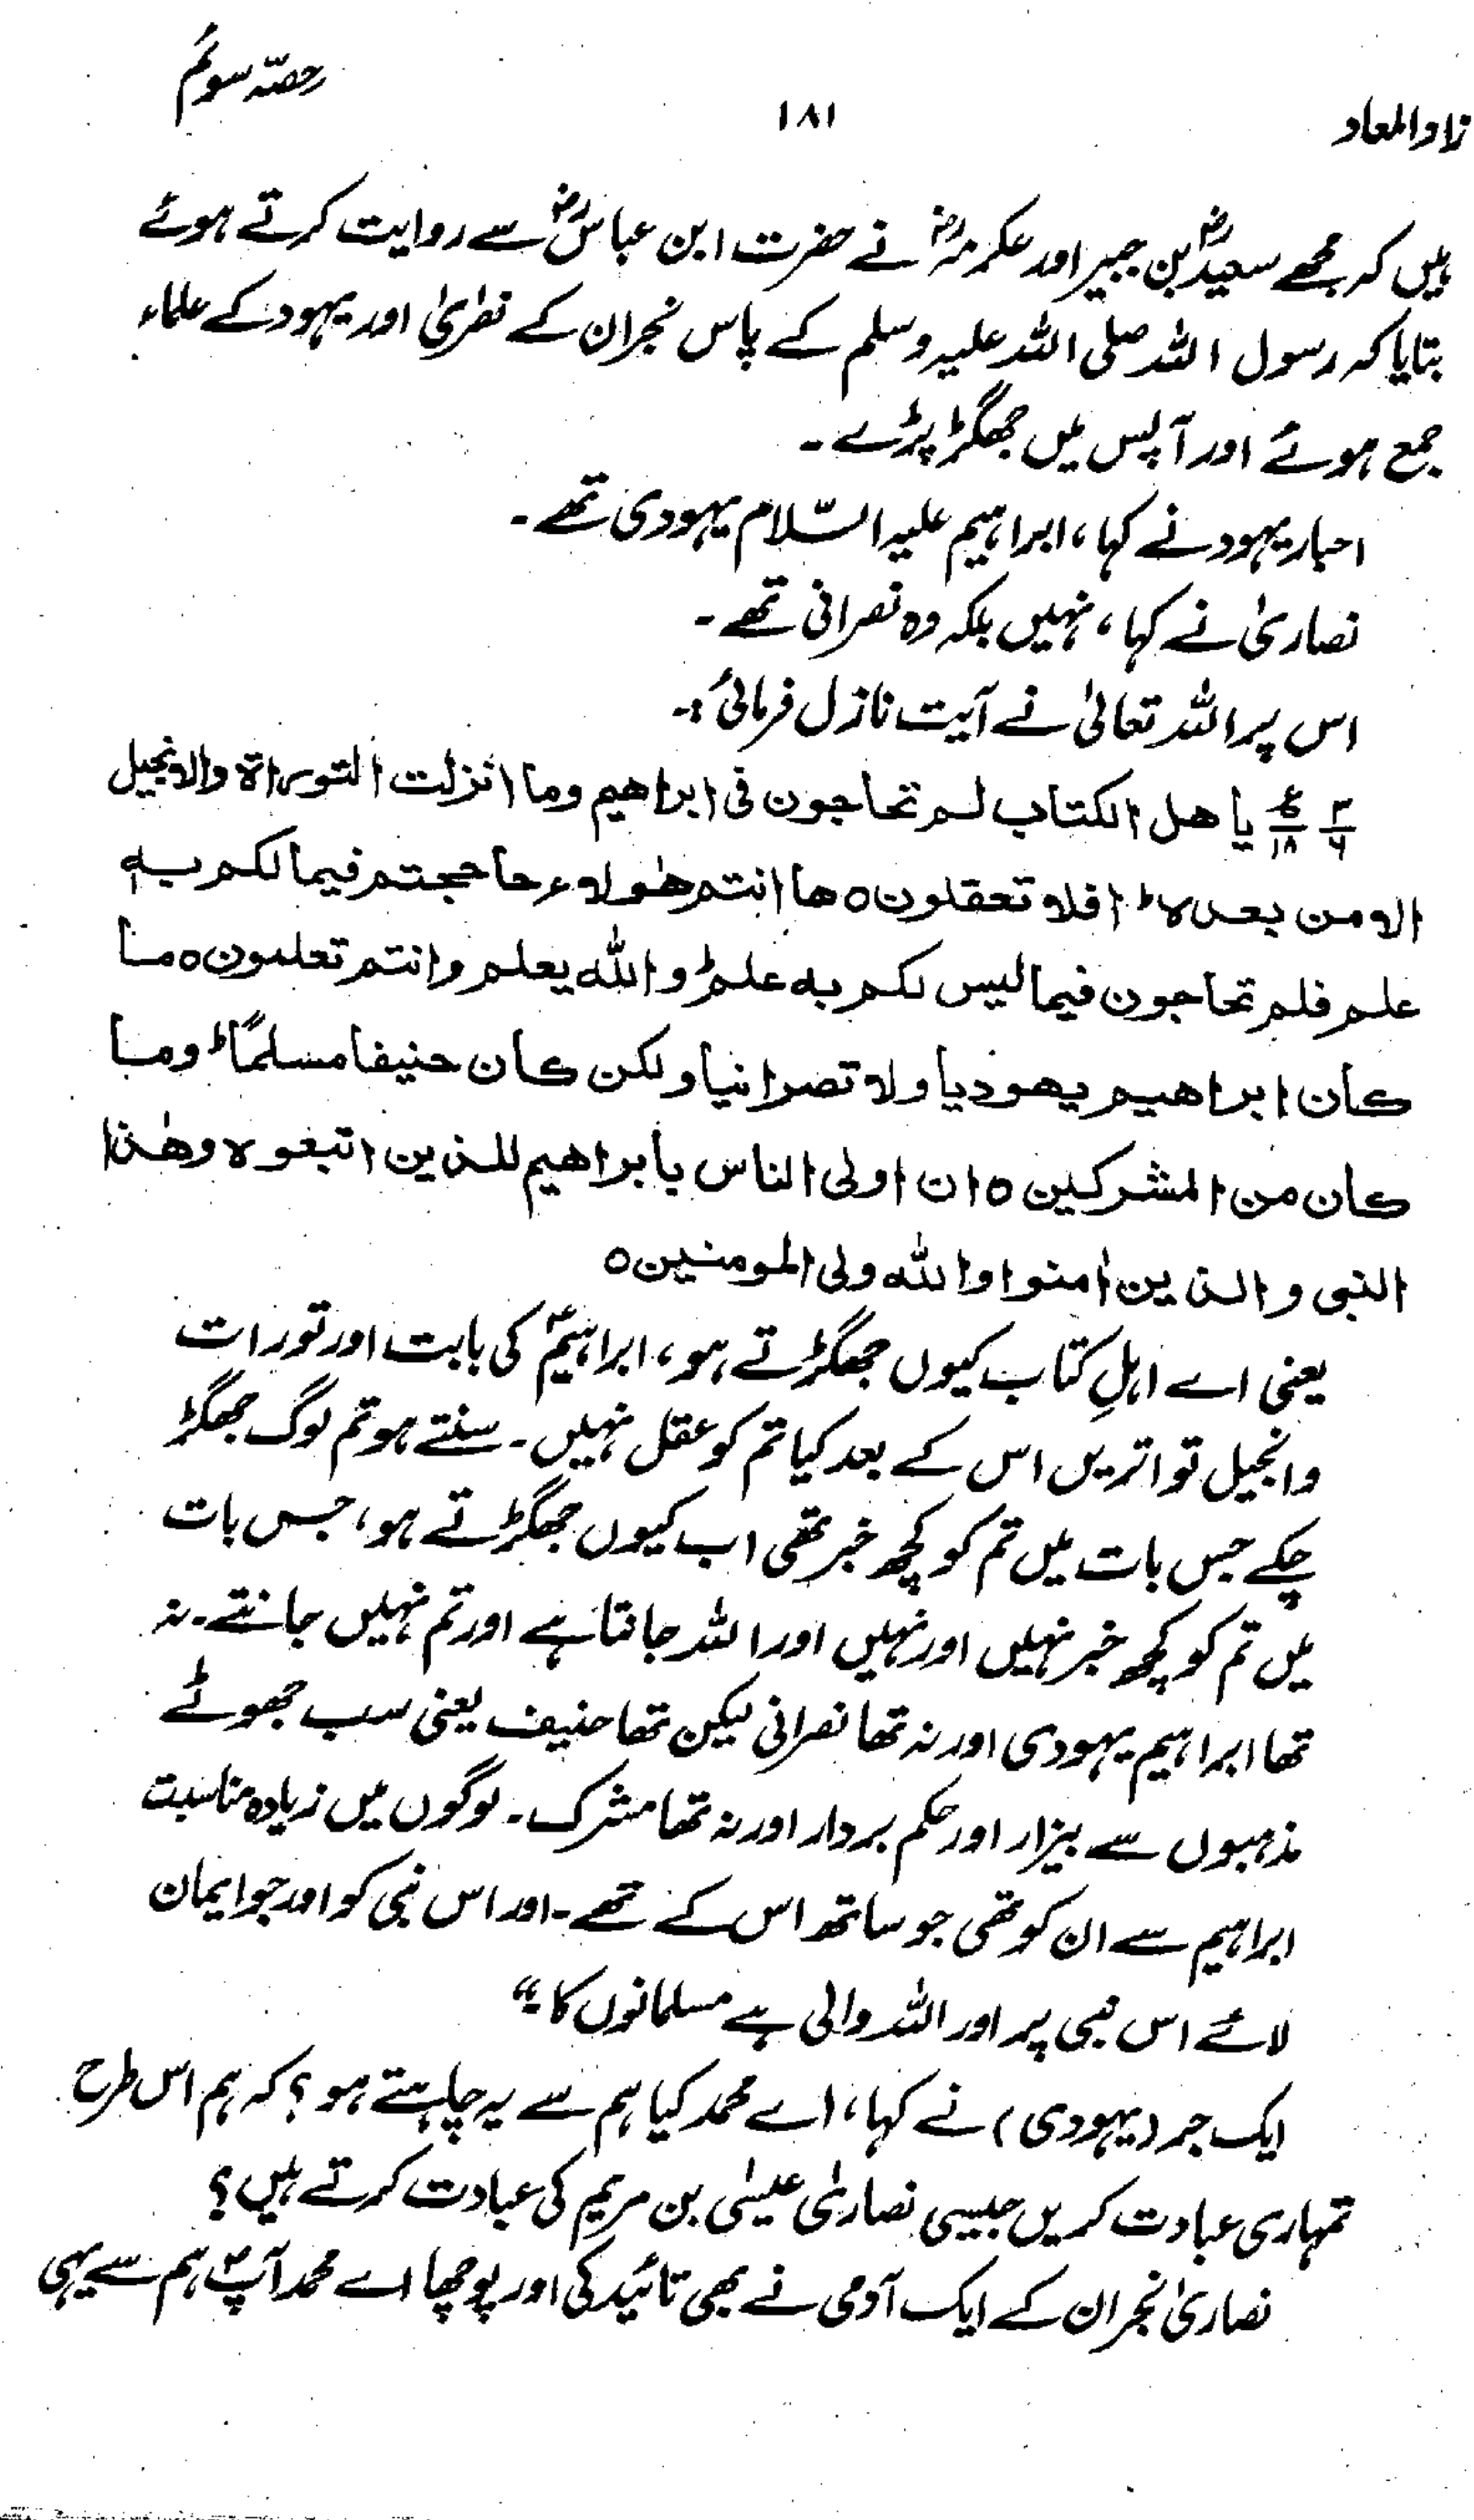 زاد المعاد ۱۸۱ حصّہ سوئم
ہیں کہ مجھے سعیدؓ بن جبیر اور عکرمہؓ نے حضرت ابن عباسؓ سے روایت کرتے ہوئے
بتایا کہ رسول اللہ صلی اللہ علیہ وسلم کے پاس نجران کے نصریٰ اور یہود کے علماء
جمع ہوئے اور آپس میں جھگڑ پڑے۔
احبار یہود نے کہا، ابراہیم علیہ السّلام یہودی تھے۔
نصاریٰ نے کہا، نہیں بلکہ وہ نصرانی تھے۔
اس پر اللہ تعالیٰ نے آیت نازل فرمائی:۔
یا ھل الکتاب لم تحاجون فی ابراھیم وما انزلت التوراۃ والانجیل
الا من بعدہ ط افلا تعقلون ○ ھا انتم ھٰولاء حاججتم فیما لکم بہٖ
علم فلم تحاجون فیما لیس لکم بہ علم ط واللہ یعلم وانتم تعلمون ○ ما
کان ابراھیم یھودیا ولا نصرانیا ولکن کان حنیفا مسلمًا ط وما
کان من المشرکین ○ ان اولی الناس بابراھیم للذین اتبعوہ وھٰذا
النبی والذین امنوا واللہ ولی المومنین ○
یعنی اے اہلِ کتاب کیوں جھگڑتے ہو، ابراہیمؑ کی بابت اور تورات
وانجیل تو اتریں اس کے بعد کیا تم کو عقل نہیں۔ سنتے ہو تم لوگ جھگڑ
چکے جس بات میں تم کو کچھ خبر تھی اب کیوں جھگڑتے ہو، جس بات
میں تم کو کچھ خبر نہیں اور نہیں اور اللہ جانتا ہے اور تم نہیں جانتے۔ نہ
تھا ابراہیم یہودی اور نہ تھا نصرانی لیکن تھا حنیف یعنی سب جھوٹے
مذہبوں سے بیزار اور حکم بردار اور نہ تھا مشرک۔ لوگوں میں زیادہ مناسبت
ابراہیم سے ان کو تھی جو ساتھ اس کے تھے۔ اور اس نبی کو اور جو ایمان
لائے اس نبی پر اور اللہ والی ہے مسلمانوں کا۔“
ایک حبر (یہودی) نے کہا، اے محمد کیا ہم سے یہ چاہتے ہو؟ کہ ہم اس طرح
تمہاری عبادت کریں جیسی نصاریٰ عیسٰی بن مریم کی عبادت کرتے ہیں؟
نصاریٰ نجران کے ایک آدمی نے بھی تائید کی اور پوچھا اے محمد آپؐ ہم سے یہی